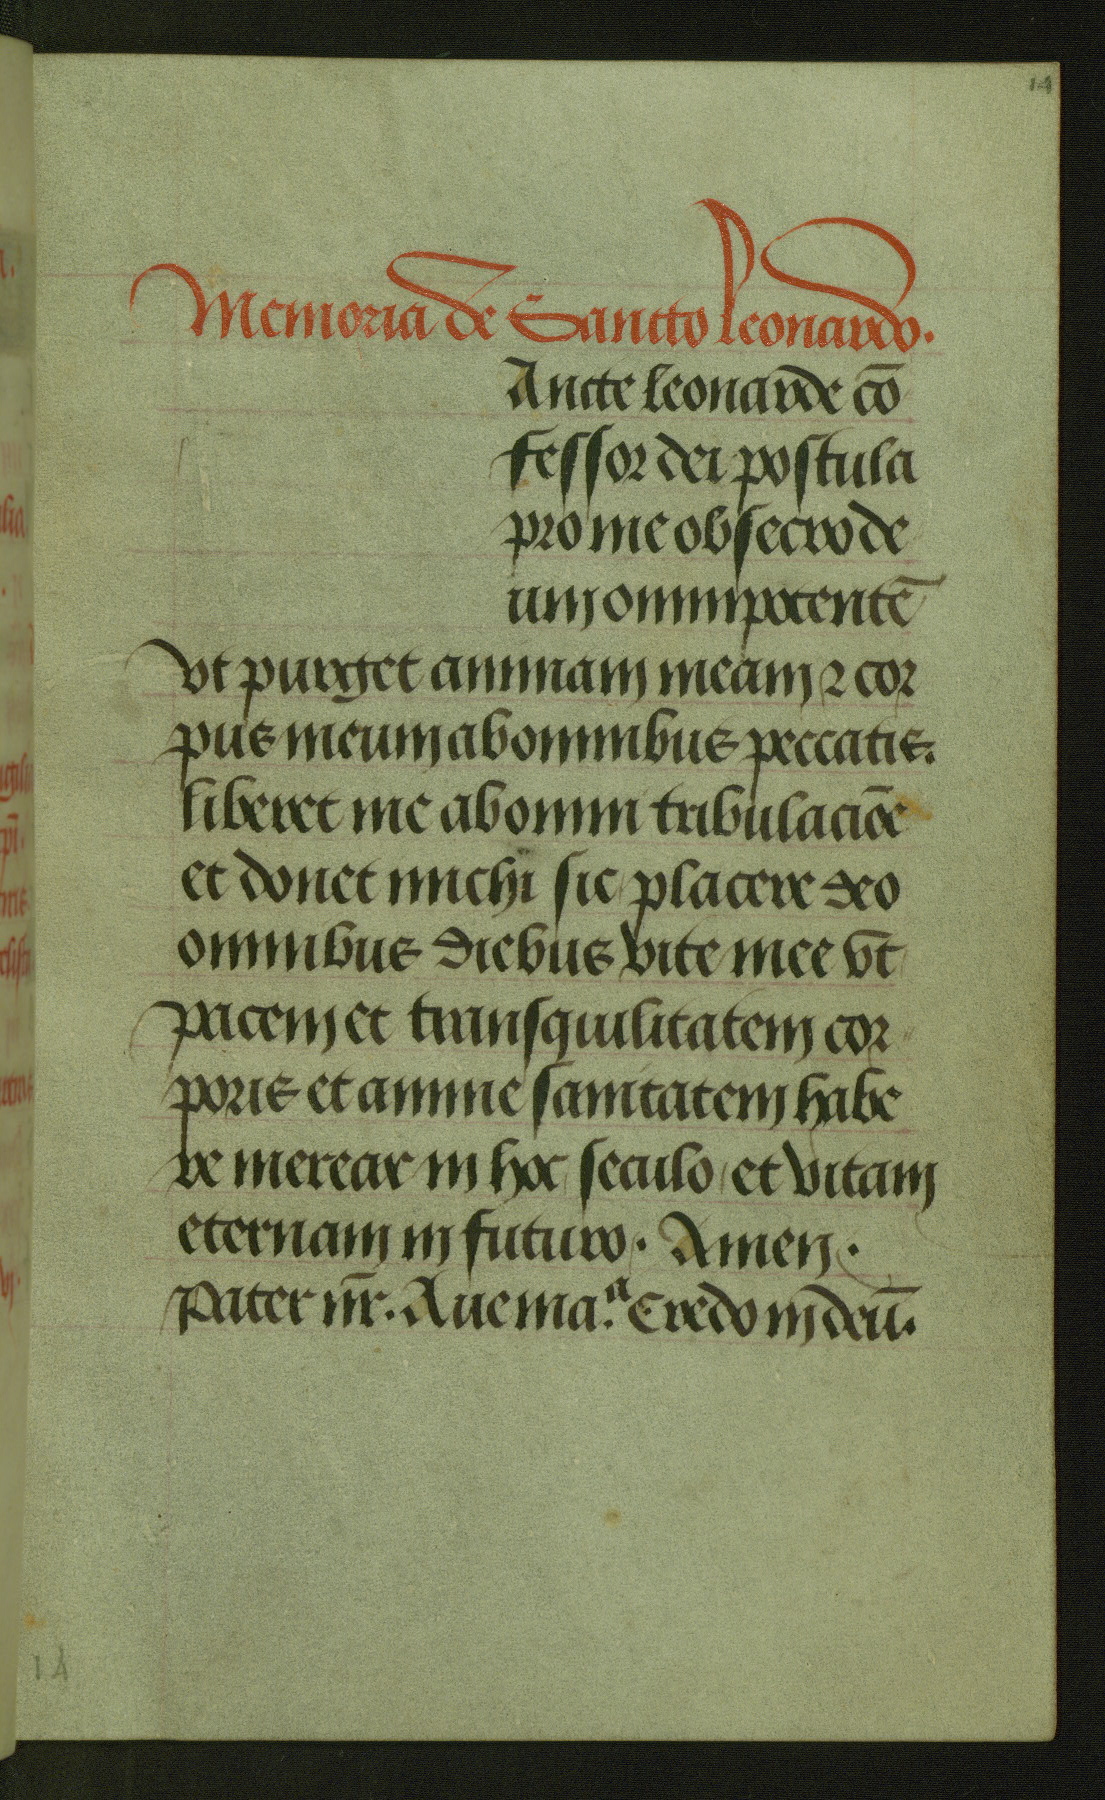 14
Memoria de Sancto Leonardo.
Ancte leonarde cō
fessor dei postula
pro me obsecro de
um omnipotentē
vt purget animam meam ⁊ cor
pus meum ab omnibus peccatis.
liberet me ab omni tribulaciōe
et donet michi sic placere deo
omnibus diebus vite mee vt
pacem et transquilitatem cor
poris et anime sanitatem habe
re merear in hoc seculo et vitam
eternam in futuro. Amen.
Pater nr̄. Aue maᵃ. Credo in deū.
14